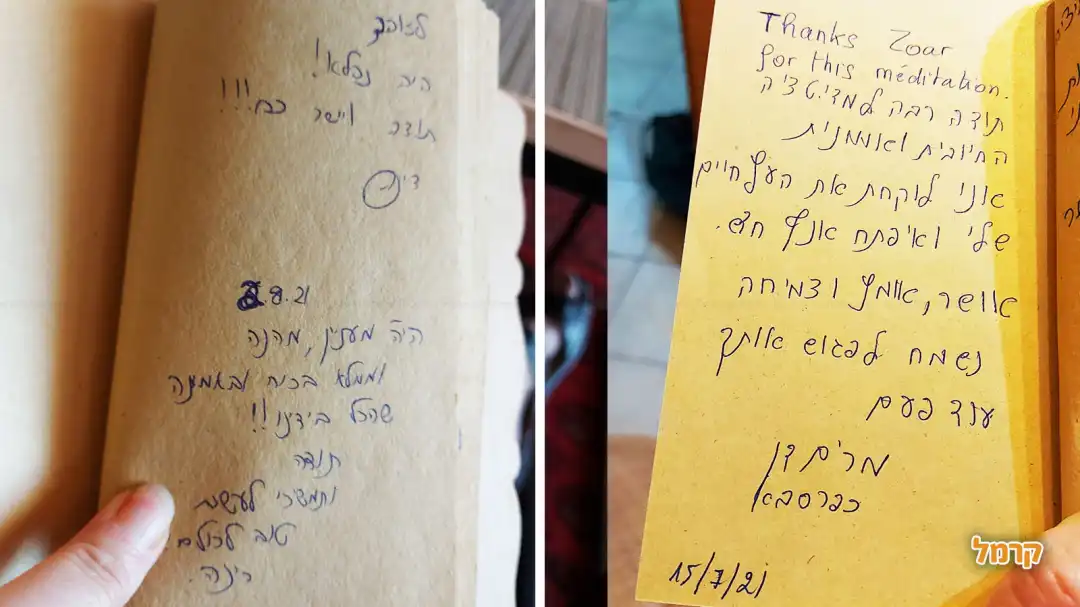 לזוהר
היה נפלא!
תודה ויישר כח!!!
דינה
2.8.21
היה מענין, מהנה
וממלא בכוח ובאמונה
שהכל בידנו!!
תודה
ותמשיכי לעשות
טוב לכולם.
רינה.
Thanks Zoar
for this méditation.
תודה רבה למדיטציה
החיובית ואומנית
אני לוקחת את העץ חיים
שלי ואיפתח אנף חדש.
אושר, אומץ וצמיחה
נשמח לפגוש אותך
עוד פעם
מרים דן
כפרסבא
15/7/21
קרמל